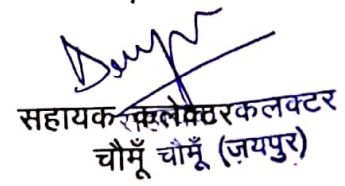 सहायक कलेक्टर कलक्टर
चौमूँ चौमूँ (जयपुर)